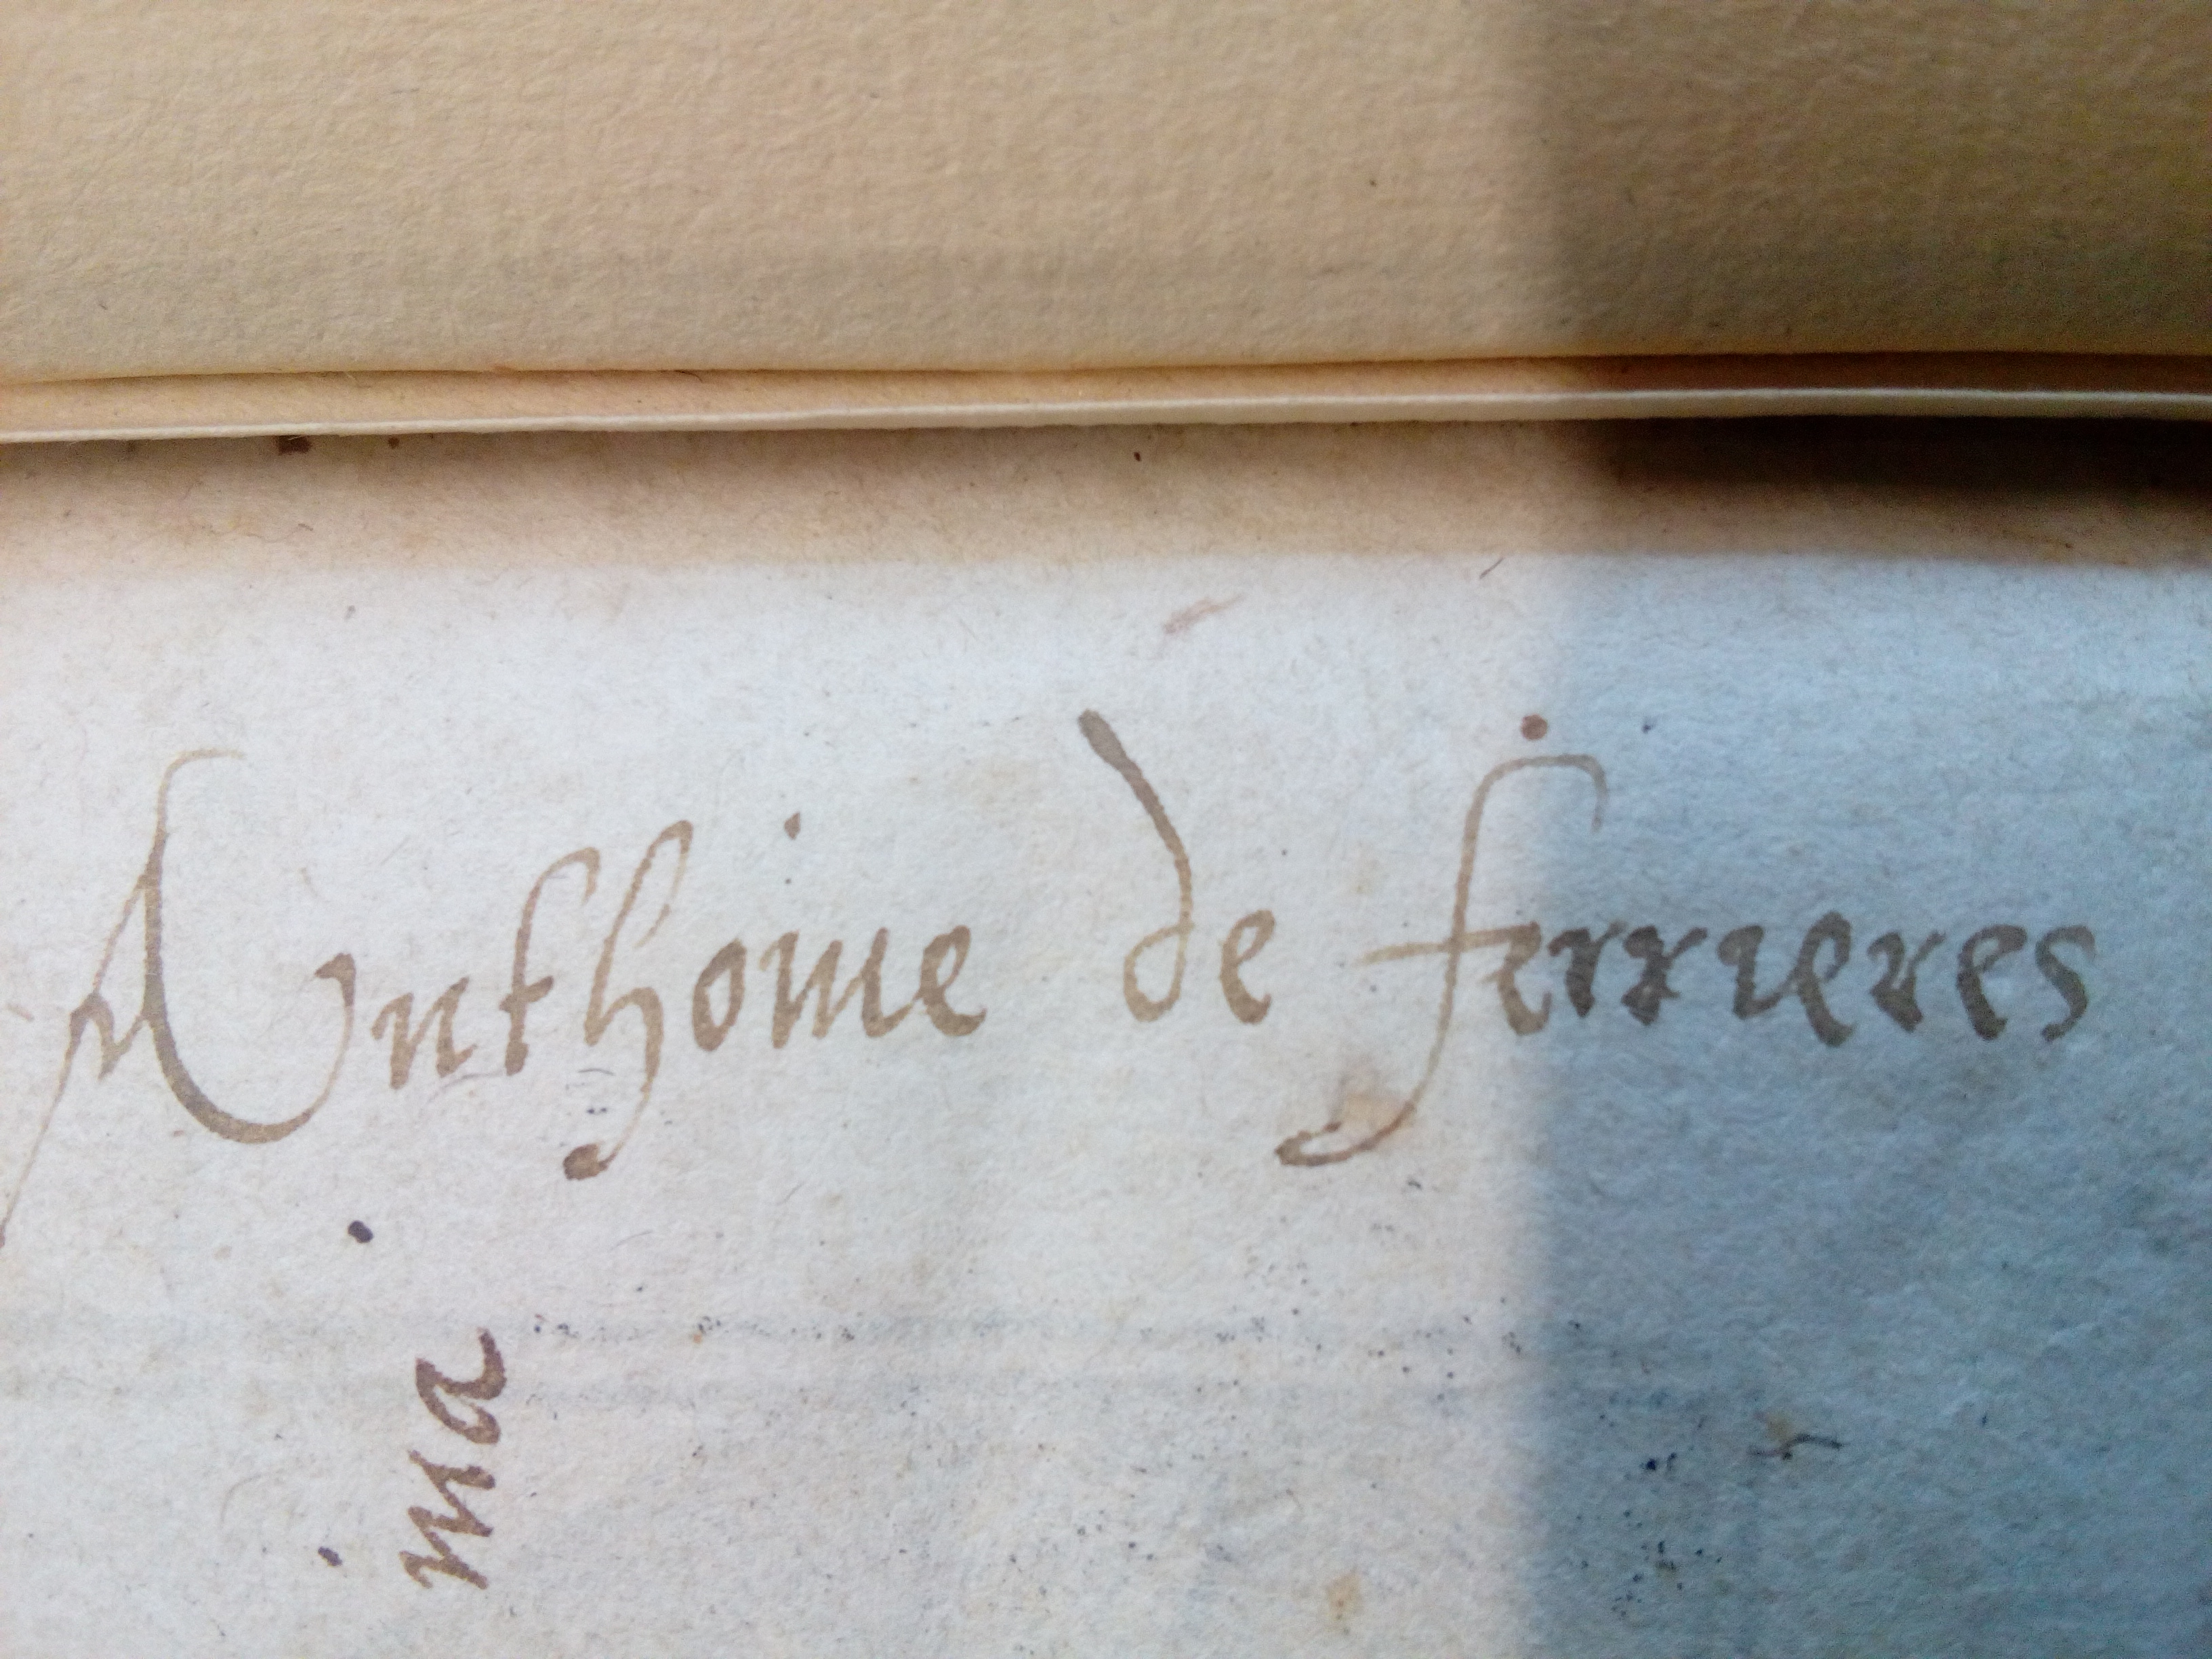 Anthoine de ferrieres
ma